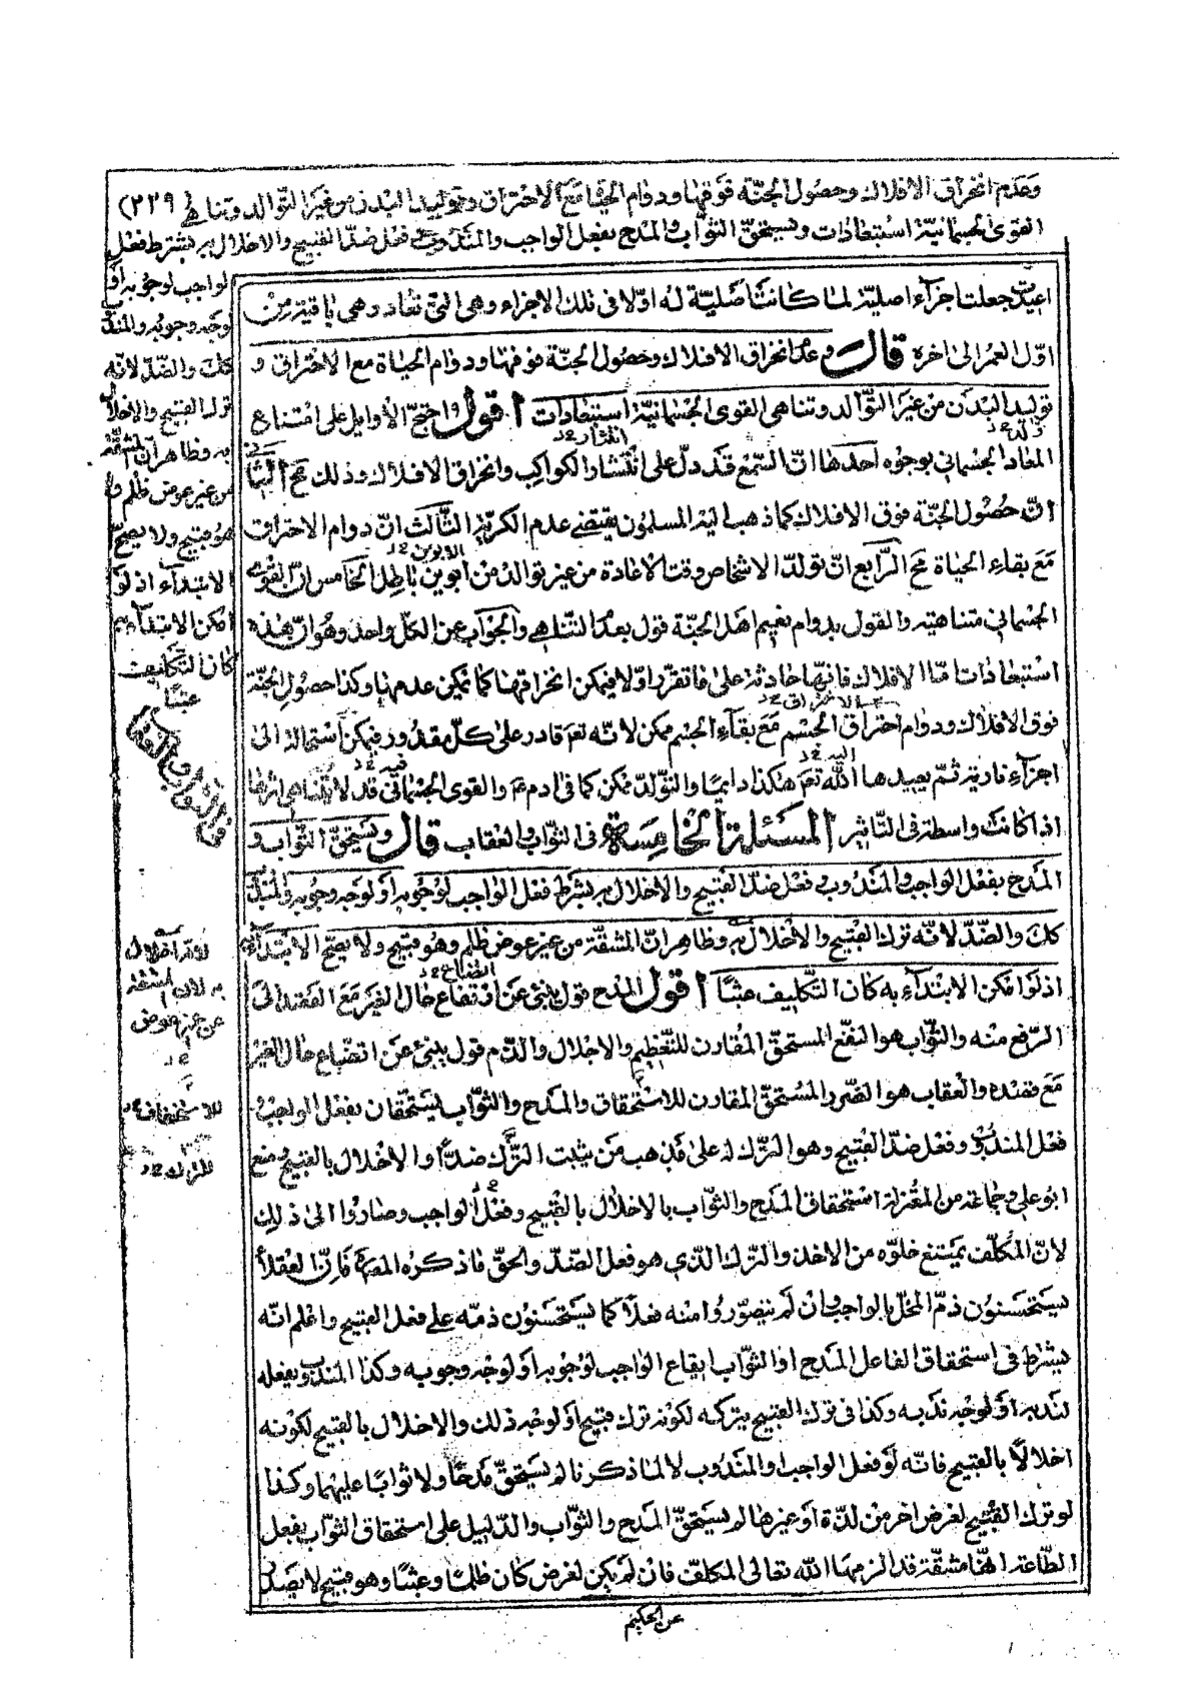 وعدم انخراق الافلاك وحصول الجنة فوقها ودوام الحياة مع الاحتراق وتوليد البدن من غير التوالد وتناهى (٢٢٩
القوى الجسمانية استبعادات ويستحق الثواب والمدح بفعل الواجب والمندوب وفعل ضد القبيح والاخلال به بشرط فعل
الواجب لوجوبه او
لوجه وجوبه والمندوب
كك والضد لانه
ترك القبيح والاخلال
به وظاهر ان المشقة
من غير عوض ظلم و
هو قبيح ولا يصح
الابتداء اذ لو
امكن الابتداء به
كان التكليف
عبثا
فى الثواب والعقاب
اعيدت جعلت اجزاء اصلية لما كانت اصلية له اولا فى تلك الاجزاء وهى التى تعاد وهى باقية من
اول العمر الى اخره قال وعدم انخراق الافلاك وحصول الجنة فوقها ودوام الحياة مع الاحتراق و
توليد البدن من غير التوالد وتناهى القوى الجسمانية استبعادات اقول واحتج الأوايل على امتناع
المعاد الجسمانى بوجوه احدها ان السمع قد دل على انتشار الكواكب وانخراق الافلاك وذلك مح الثانى
ان حصول الجنة فوق الافلاك كما ذهب اليه المسلمون يقتضى عدم الكرية الثالث ان دوام الاحتراق
مع بقاء الحياة مح الرابع ان تولد الاشخاص وقت الاعادة من غير توالد من ابوين باطل الخامس ان القوى
الجسمانى متناهية والقول بدوام نعيم اهل الجنة قول بعدم التناهى والجواب عن الكل واحد وهو ان هذه
استبعادات اما الافلاك فانها حادثة على ما تقرر اولا فيمكن انخراقها كما يمكن عدمها وكذا حصول الجنة
فوق الافلاك ودوام احتراق الجسم مع بقاء الجسم ممكن لانه تعم قادر على كل مقدور فيمكن استحالته الى
اجزاء نارية ثم يعيدها الله تعم هكذا دايما والتولد ممكن كما فى ادم ع والقوى الجسمانى قد لا يتناهى اثرها
اذا كانت واسطة فى التاثير المسئلة الخامسة فى الثواب والعقاب قال ويستحق الثواب و
المدح بفعل الواجب والمندوب وفعل ضد القبيح والاخلال به بشرط فعل الواجب لوجوبه او لوجه وجوبه والمندوب
كك والضد لانه ترك القبيح والاخلال به وظاهر ان المشقة من غير عوض ظلم وهو قبيح ولا يصح الابتداء
اذ لو امكن الابتداء به كان التكليف عبثا اقول المدح قول ينبئ عن ارتفاع حال الغير مع القصد الى
الرفع منه والثواب هو النفع المستحق المقارن للتعظيم والاجلال والذم قول ينبئ عن اتضاع حال الغير
مع قصده والعقاب هو الضرر المستحق المقارن للاستحقاق والمدح والثواب يستحقان بفعل الواجب و
فعل المندوب وفعل ضد القبيح وهو الترك له على مذهب من يثبت الترك ضدا والاخلال بالقبيح ومنع
ابو على وجماعة من المعتزلة استحقاق المدح والثواب بالاخلال بالقبيح وفعل الواجب وصاروا الى ذلك
لان المكلف يمتنع خلوه من الاخذ والترك الذى هو فعل الضد والحق ما ذكره المصره فان العقلاء
يستحسنون ذم المخل بالواجب وان لم يتصوروا منه فعلا كما يستحسنون ذمه على فعل القبيح واعلم انه
يشترط فى استحقاق الفاعل المدح او الثواب ايقاع الواجب لوجوبه او لوجه وجوبه وكذا المندوب يفعله
لندبه او لوجه ندبه وكذا فى ترك القبيح يتركه لكونه ترك قبيح او لوجه ذلك والاخلال بالقبيح لكونه
اخلالا بالقبيح فانه لو فعل الواجب والمندوب لا لما ذكرنا لم يستحق مدحا ولا ثوابا عليهما وكذا
لو ترك القبيح لغرض اخر من لذة او غيرها لم يستحق المدح والثواب والدليل على استحقاق الثواب بفعل
الطاعة انها مشقة قد الزمها الله تعالى المكلف فان لم يكن لغرض كان ظلما وعبثا وهو قبيح لا يصدر
عن الحكيم
به لان المشقة
من غير عوض
للاستخفاف
للترك